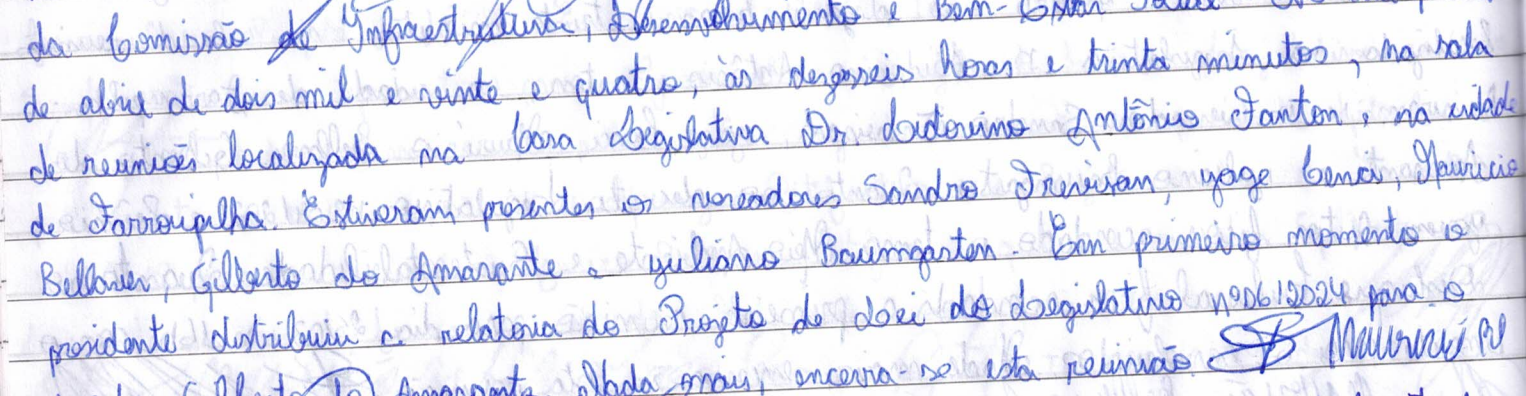 da Comissão de Infraestrutura, Desenvolvimento e Bem-Estar
de abril de dois mil e vinte e quatro, às dezesseis horas e trinta minutos, na sala
de reuniões localizada na Casa Legislativa Dr. Lidovino Antônio Fanton, na cidade
de Farroupilha. Estiveram presentes os vereadores Sandro Trevisan, Yago Cenci, Mauricio
Bellaver, Gilberto do Amarante e Juliano Baumgarten. Em primeiro momento o
presidente distribuiu a relatoria do Projeto de Lei do Legislativo nº06/2024 para o
Gilberto do Amarante. Nada mais, encerra-se esta reunião.